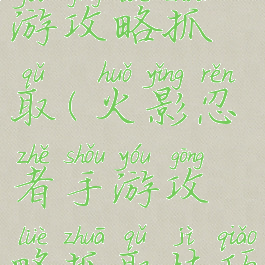 游攻略抓
qǔ huǒ yǐng rěn
取(火影忍
zhě shǒu yóu gōng
者手游攻
lüè zhuā qǔ jì qiǎo
略抓取技巧